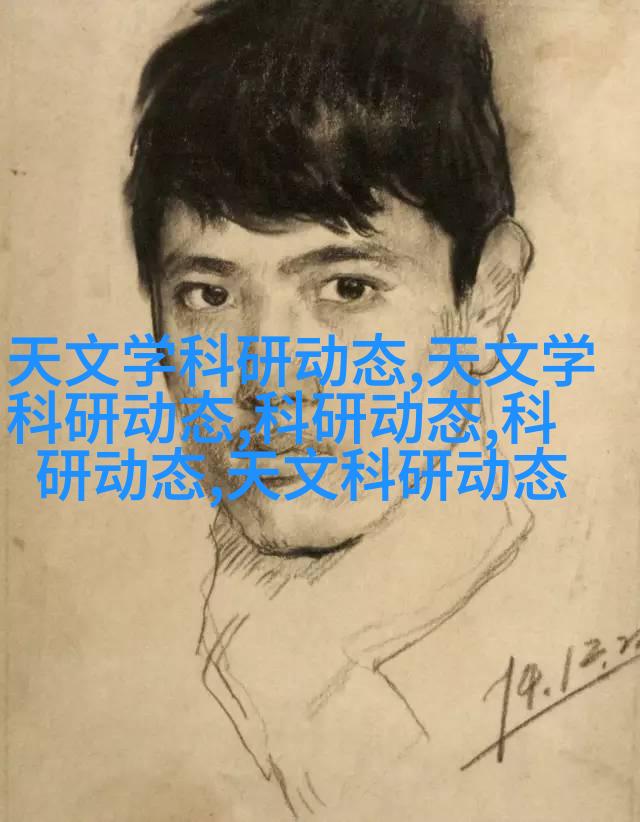 天文学科研动态,天文学
科研动态,科研动态,科
研动态,天文科研动态